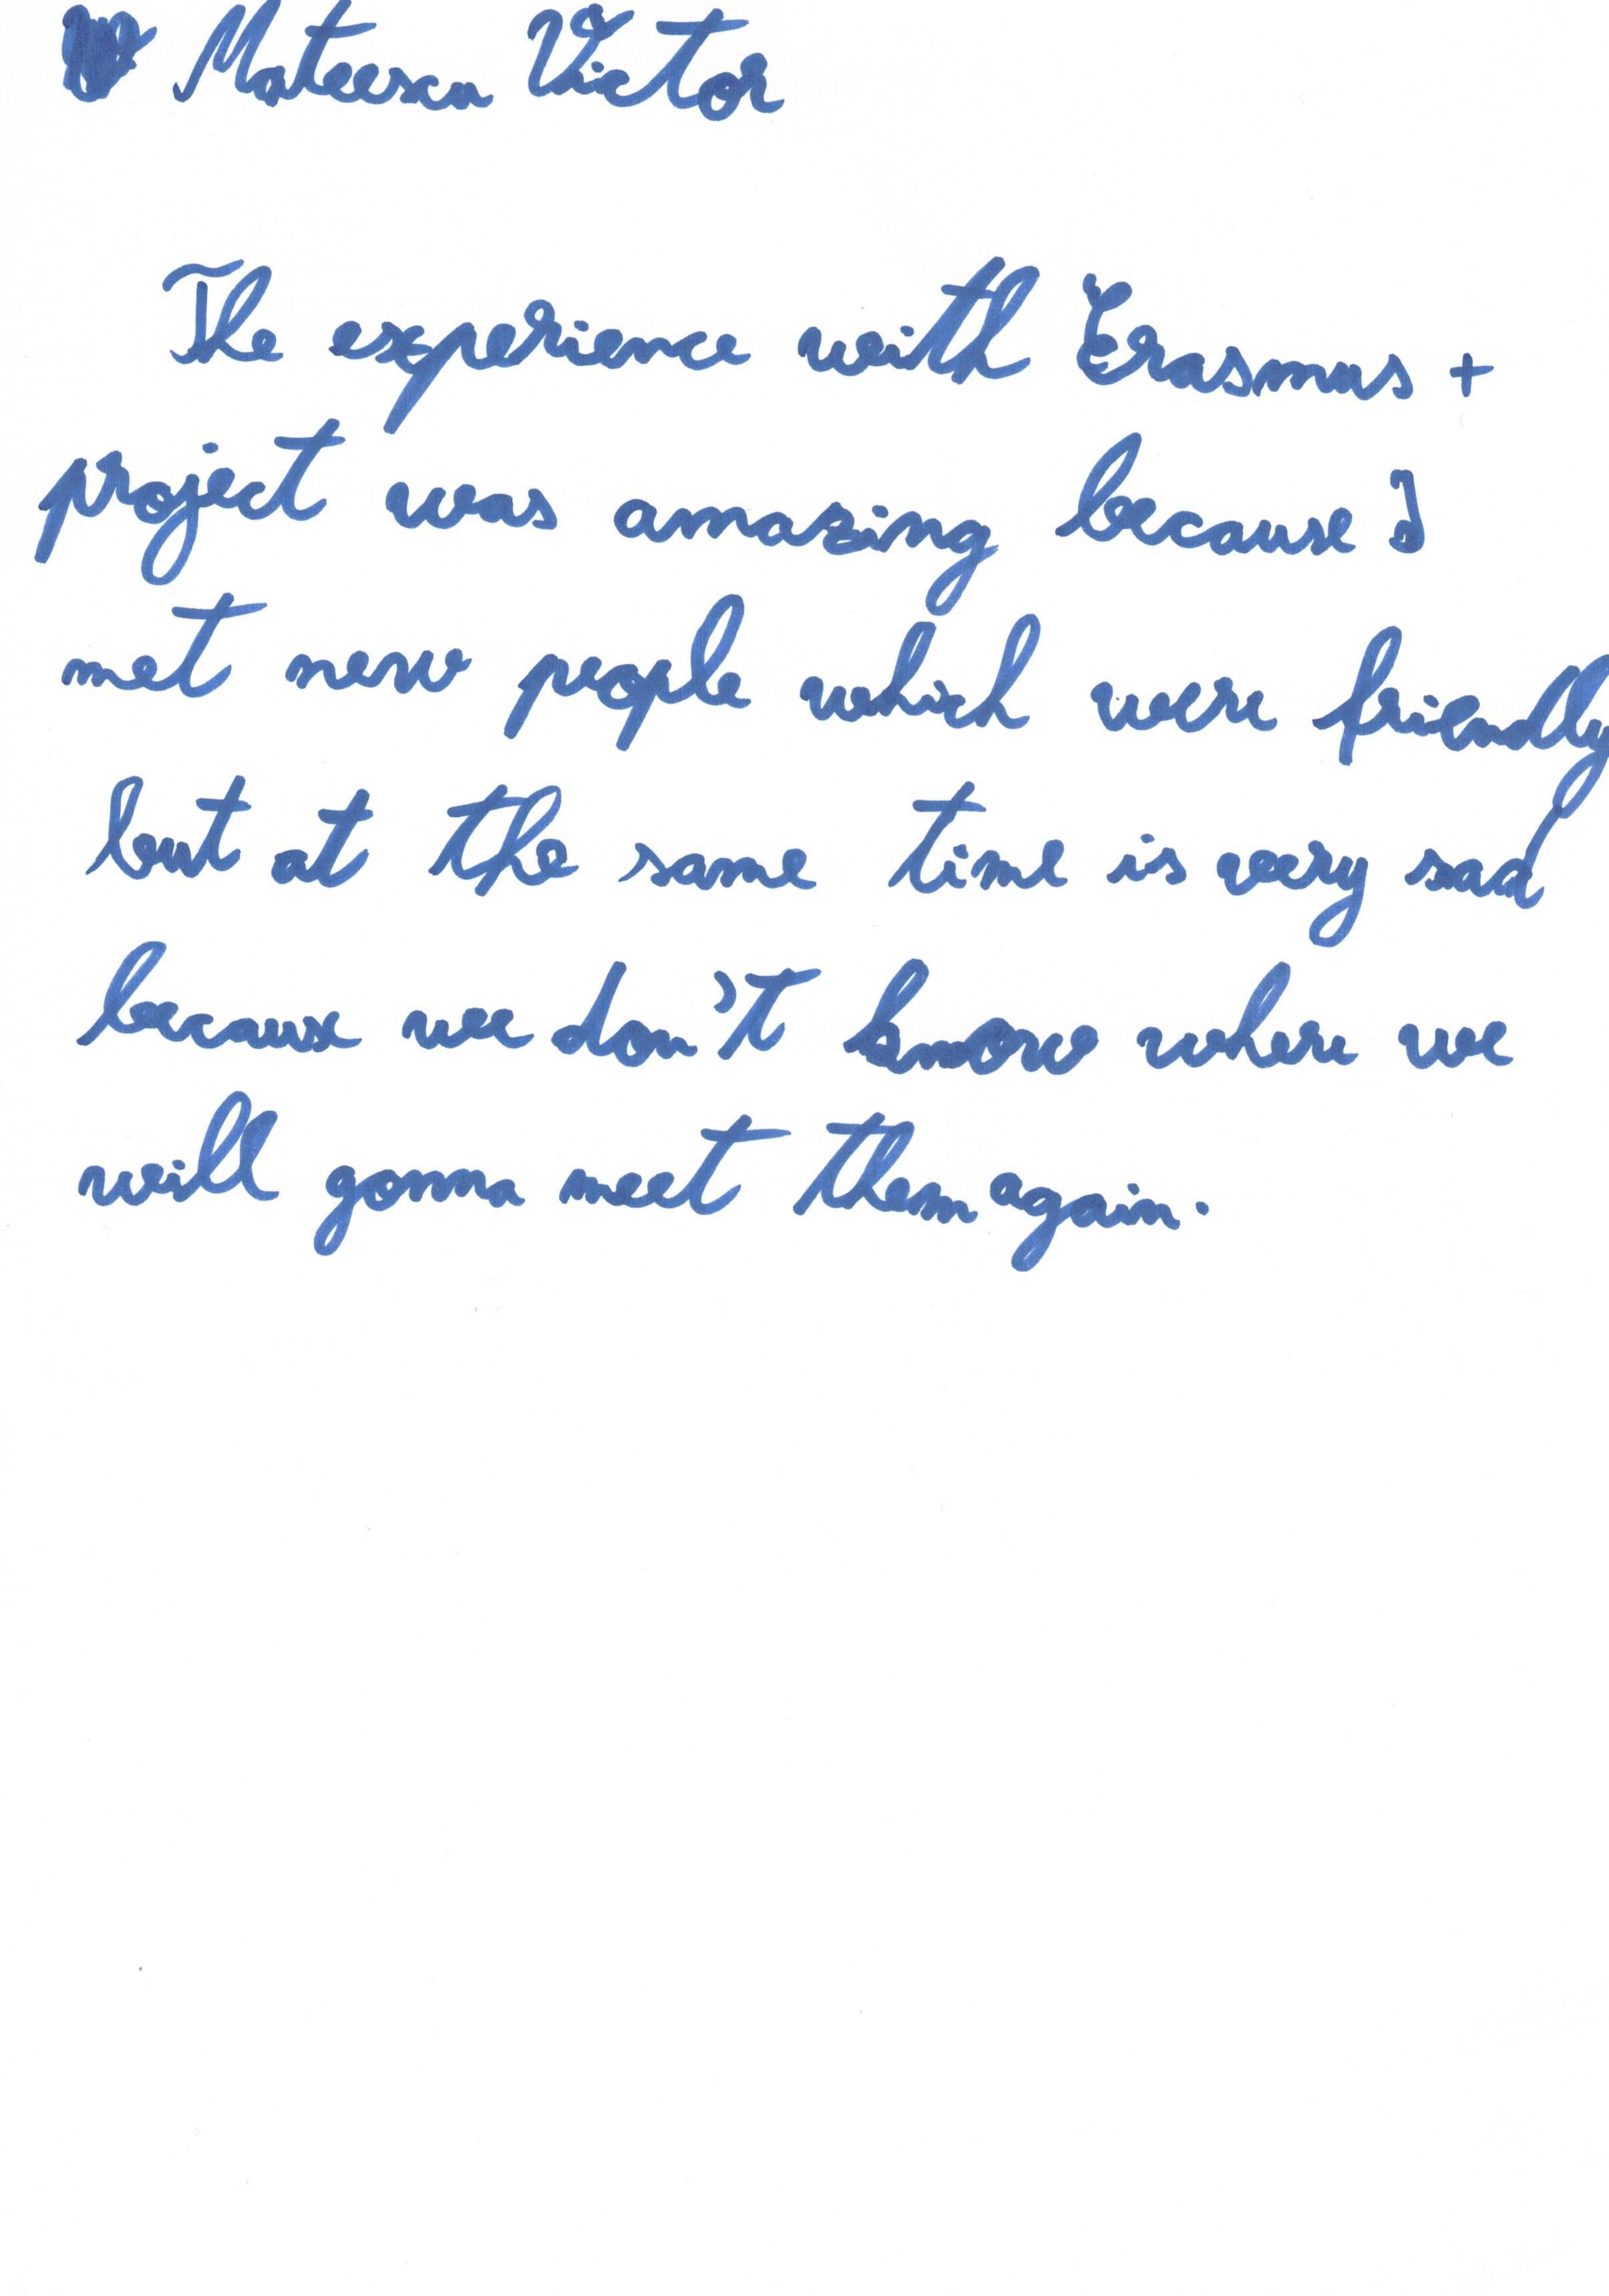 Mateescu Victor
The experience with Erasmus +
project was amazing because I
met new people which were friendly
but at the same time is very sad
because we don't know where we
will gonna meet them again.